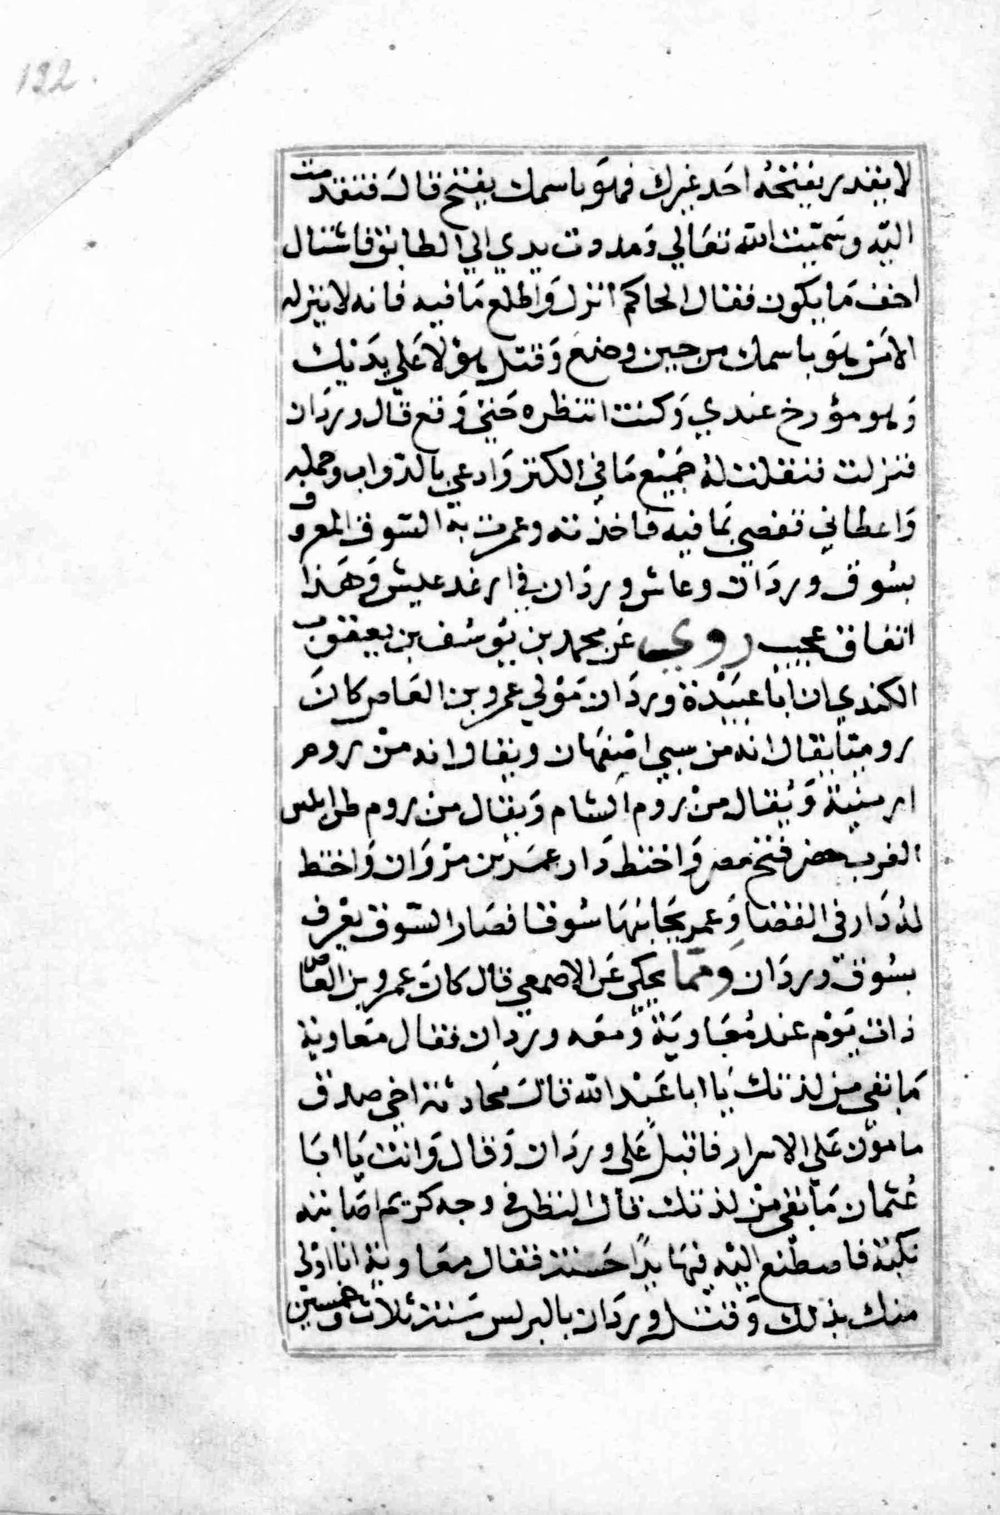 122
لا يقدر يفتحه احد غيرك فهو باسمك يفتح قال فتقدمت
اليه وسميت الله تعالي ومددت يدي الي الطابق فاشتال
اخف ما يكون فقال الحاكم انزل واطلع ما فيه فانه لا ينزله
الا من هو باسمك من حين وضع وقتل هؤلا علي يديك
وهو مؤرخ عندي وكنت انتظره حتى وقع قال وردان
فنزلت فنقلت له جميع ما في الكنز وادعي بالدواب وحمله
واعطاني قفصي بما فيه فاخذته وعمرت به السوق المعروف
بسوق وردان وعاش وردان في ارغد عيش وهذا
اتفاق عجيب روي عن محمد بن يوسف بن يعقوب
الكندي ان ابا عبيدة وردان مولي عمرو بن العاص كان
روميا يقال انه من سبي اصفهان ويقال انه من روم
ارمينية ويقال من روم الشام ويقال من روم طرابلس
الغرب حضر فتح مصر واختط دار عمر بن مروان واختط
له دار في الفضا وعمر بجانبها سوقا فصار السوق يعرف
بسوق وردان ومما يحكي عن الاصمعي قال كان عمرو بن العاص
ذات يوم عند معاوية ومعه وردان فقال معاوية
ما بقي من لذتك يا ابا عبد الله قال محادثة اخي صدق
مامون علي الاسرار فاقبل على وردان وقال وانت يا ابا
عثمان ما بقي من لذتك قال النظر في وجه كريم اصابته
نكبة فاصطنع اليه فيها يدا حسنة فقال معاوية انا اولي
منك بذلك وقتل وردان بالبرلس سنة ثلاث وخمسين